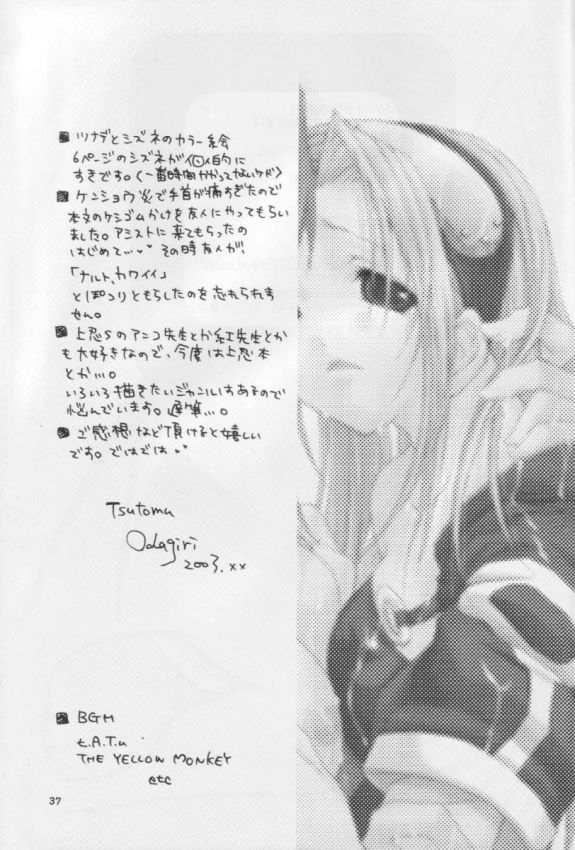 ツナデとシズネのカラー絵
6ページのシズネが個人的に
すきです。(一番時間かかってないケド)
ケンショウ炎で手首が痛すぎたので
本文のケシゴムかけを友人にやってもらい
ました。アシストに来てもらったの
はじめて…。その時友人が、
「ナルト、カワイイ」
とぽつりともらしたのを忘れられま
せん。
上忍Sのアンコ先生とか紅先生とか
も大好きなので、今度は上忍本
とか…。
いろいろ描きたいジャンルはあるので
悩んでいます。遅筆…。
ご感想など頂けると嬉しい
です。ではでは
Tsutomu
Odagiri
2003.××
BGM
t.A.T.u
THE YELLOW MONKEY
etc
37